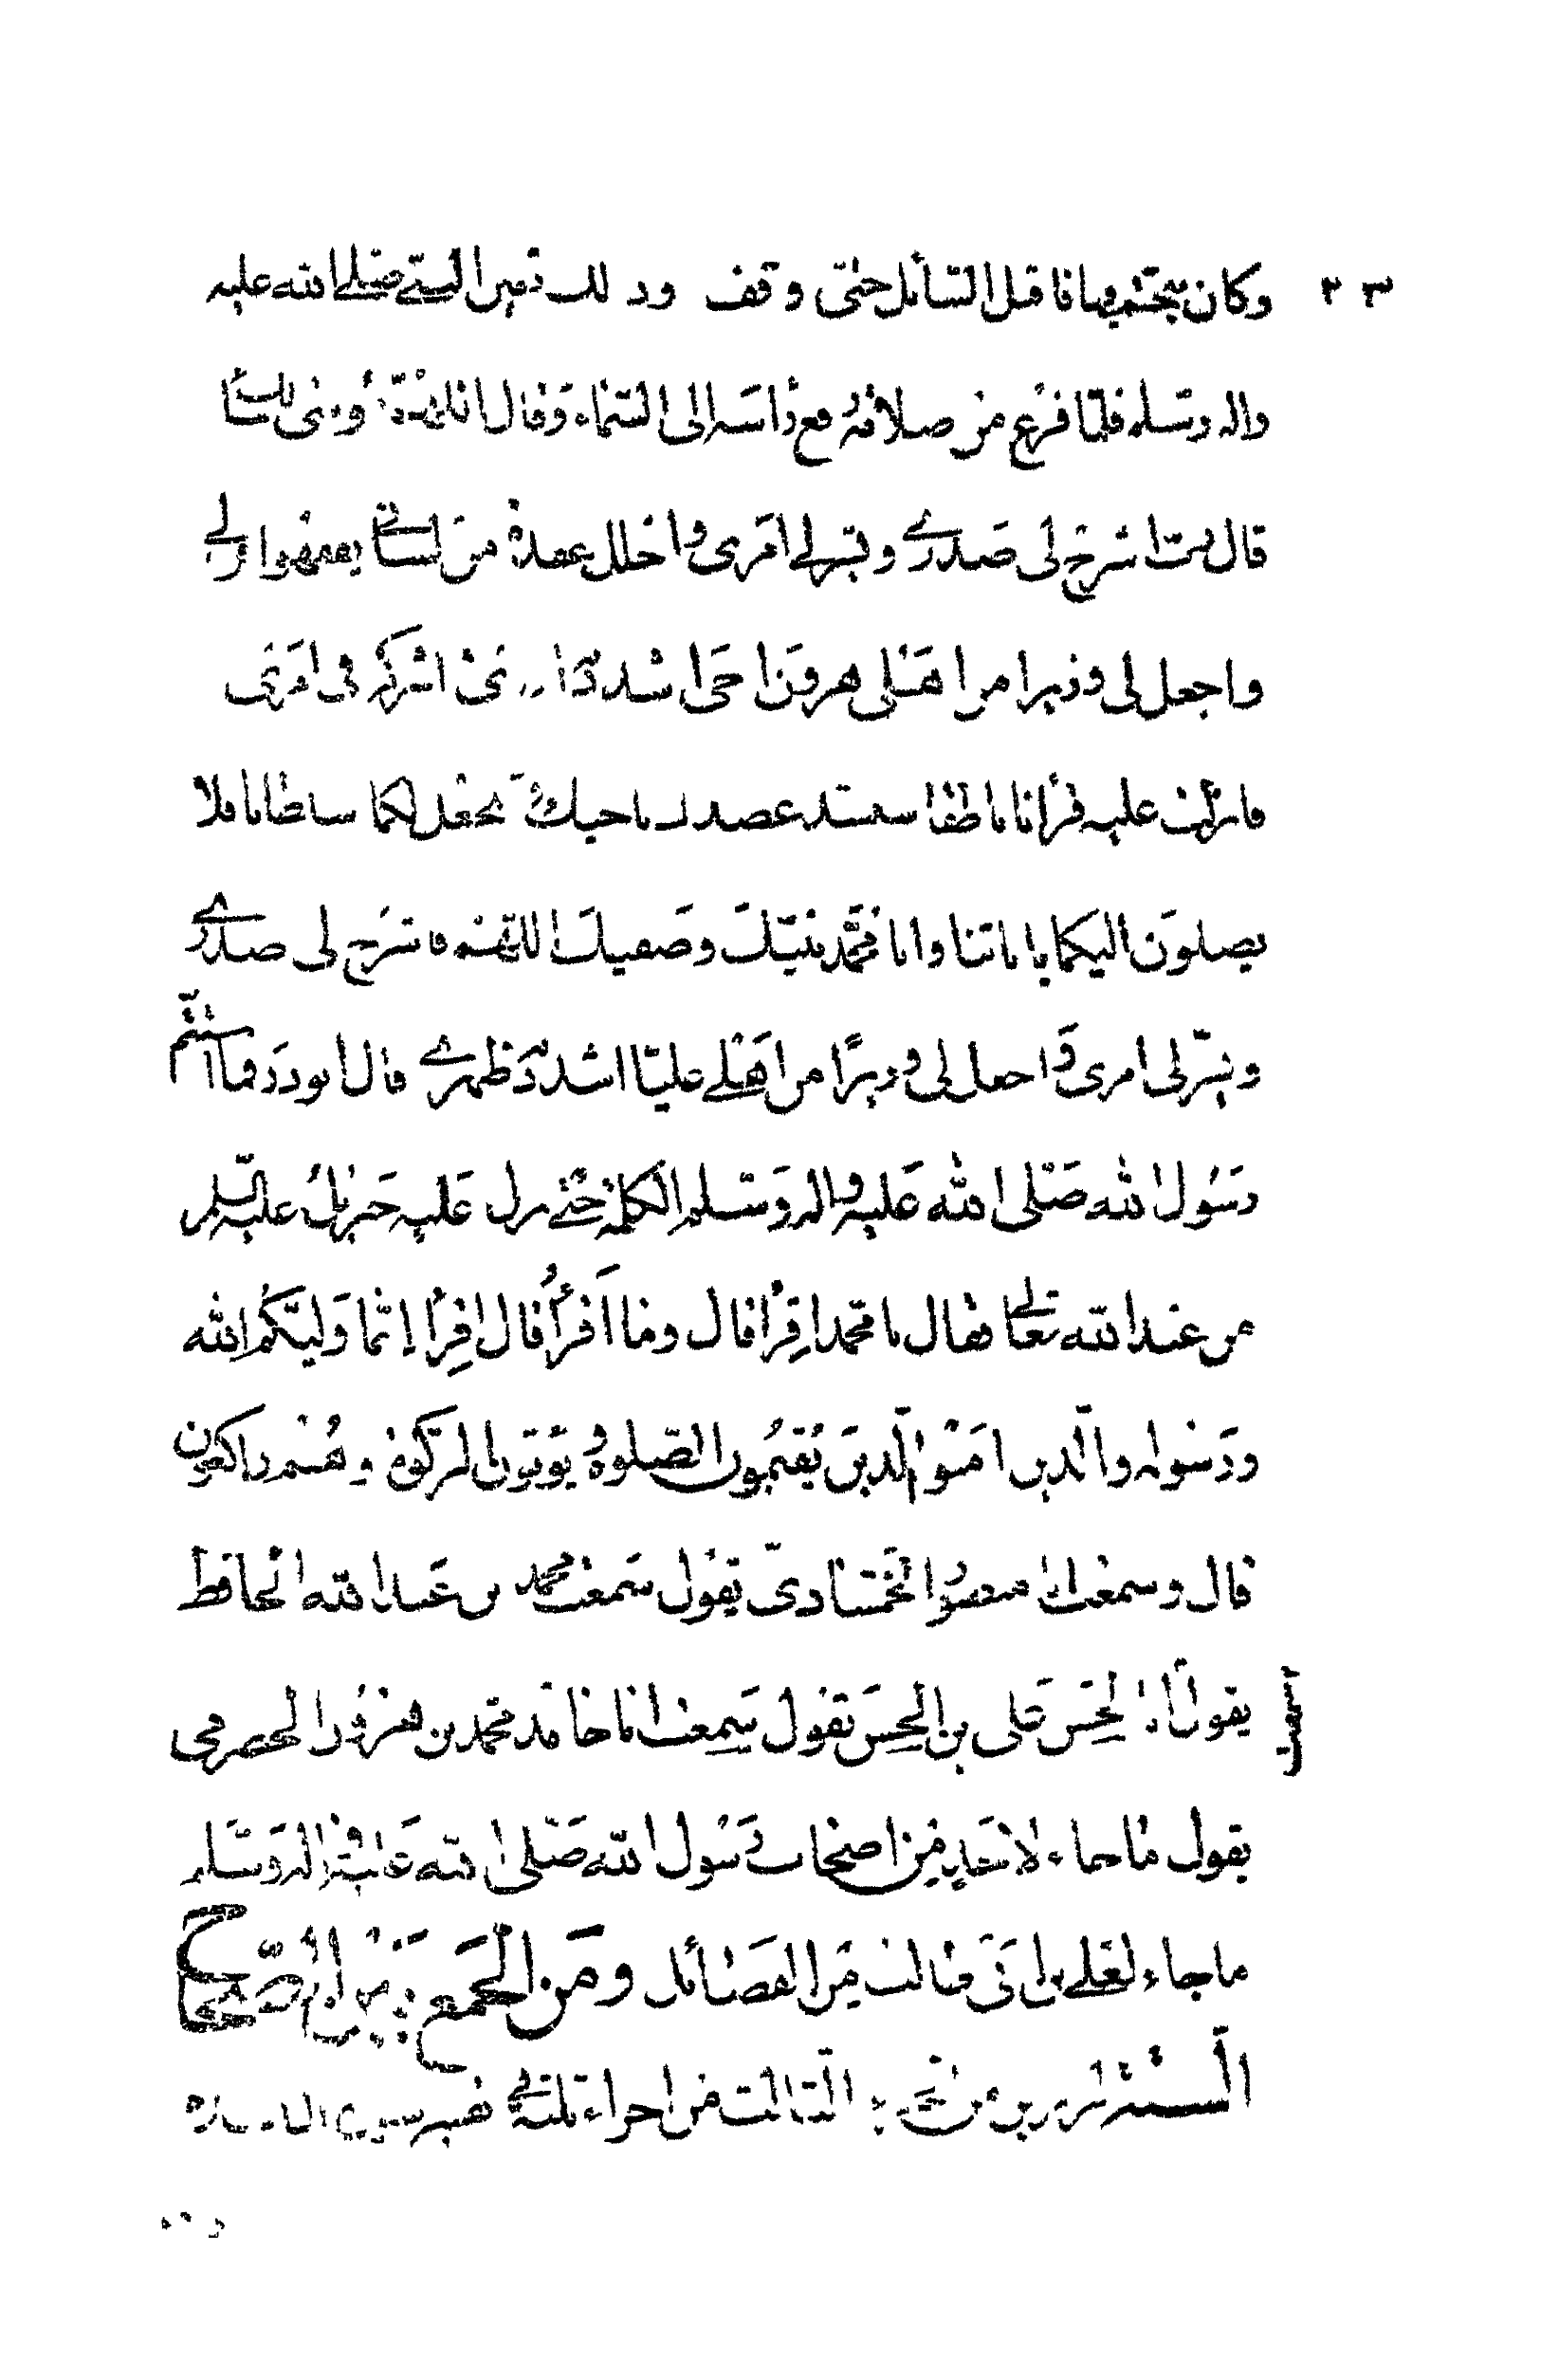 ٢٣
وكان يتختم فيها فاقبل السائل حتى وقف وذلك بعين النبي صلى الله عليه
واله وسلم فلما فرغ من صلاته رفع رأسه الى السماء وقال اللهم موسى سألك
قال رب اشرح لى صدرى ويسر لي امرى واحلل عقدة من لساني يفقهوا قولي
واجعل لى وزيرا من اهلى هرون اخى اشدد به ازرى واشركه فى امرى
فانزلت عليه قرأنا ناطقا سنشد عضدك باخيك ونجعل لكما سلطانا فلا
يصلون اليكما باياتنا وانا محمد نبيك وصفيك اللهم فاشرح لى صدرى
ويسر لى امرى واجعل لى وزيرًا من اهلي عليّا اشدد به ظهرى قال ابو ذر فما استتم
رسول الله صلى الله عليه واله وسلم الكلمة حتى نزل عليه جبريل عليه السلم
من عند الله تعالى فقال يا محمد اقرأ قال وما اقرأ قال اقرأ انما وليكم الله
ورسوله والذين امنوا الذين يقيمون الصلوة ويؤتون الزكوة وهم راكعون
قال وسمعت ابا منصور الخمشادى يقول سمعت محمد بن عبد الله الحافظ
يقول ابا الحسن على بن الحسن يقول سمعت ابا حامد محمد بن هرون الحضرمى
سمعت
يقول ما جاء لاحد من اصحاب رسول الله صلى الله عليه واله وسلم
ما جاء لعلي بن ابى طالب من الفضائل ومن الجمع بين الصحاح
الستة لرزين من الجزء الثالث من اجزاء ثلثة في تفسير سورة المائدة